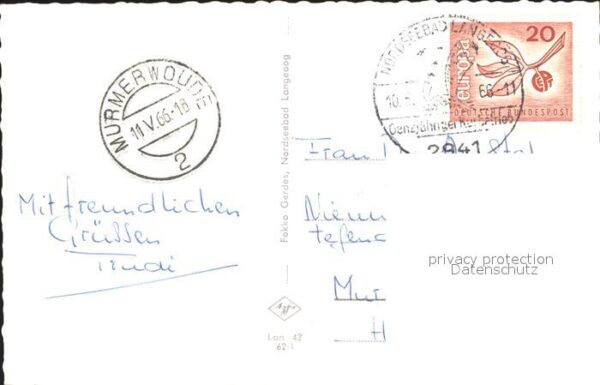 MURMERWOUDE
11.V.66-18
2
NORDSEEBAD LANGEOOG
10. 66-11
2941
europa
20
CEPT
DEUTSCHE BUNDESPOST
Mit freundlichen
Grüssen
Trudi
Fokko Gerdes, Nordseebad Langeoog
Lan 42
62/1
Frau
Nieuw
Mur
H
privacy protection
Datenschutz